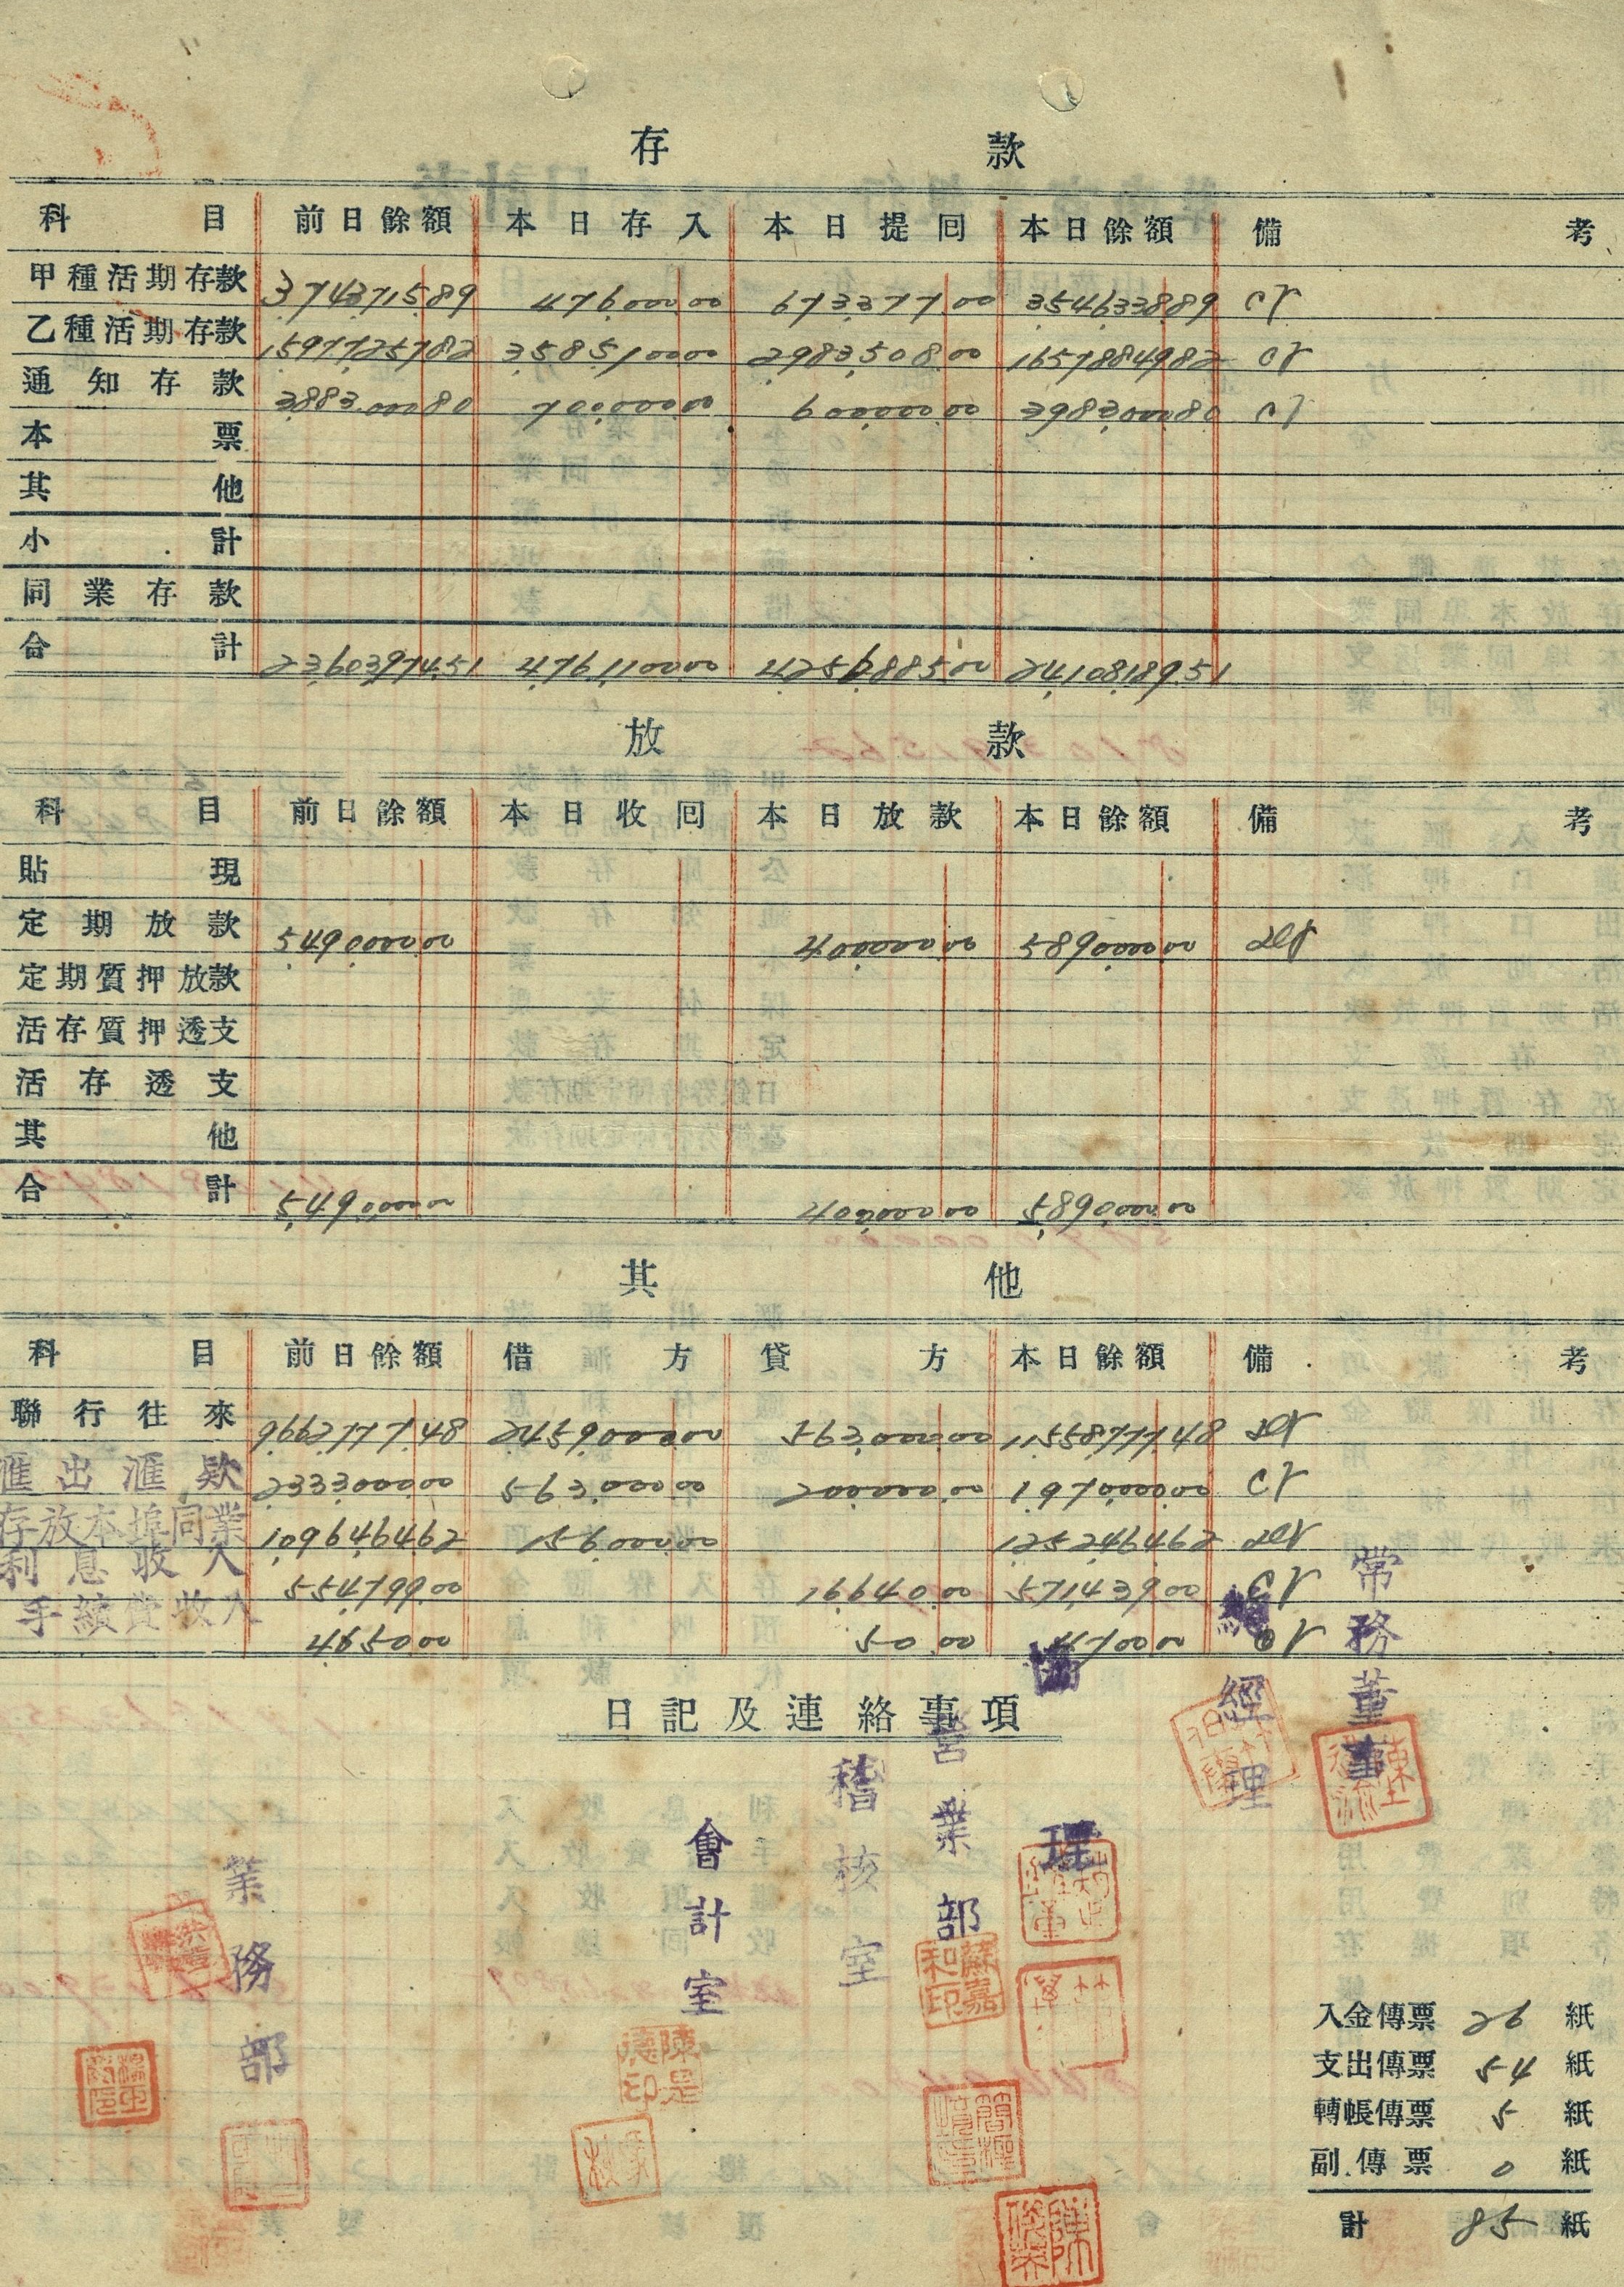 存 款
科目 前日餘額 本日存入 本日提囘 本日餘額 備考
甲種活期存款 3,743,715.89 476,000.00 673,377.00 3,546,338.89 cr
乙種活期存款 15,977,257.82 3,585,100.00 2,983,508.00 16,578,849.82 cr
通知存款 3,883,000.80 700,000.00 600,000.00 3,983,000.80 cr
本票
其他
小計
同業存款
合計 23,603,974.51 4,761,100.00 4,256,885.00 24,108,189.51
放 款
科目 前日餘額 本日收囘 本日放款 本日餘額 備考
貼現
定期放款 5,490,000.00 400,000.00 5,890,000.00 dr
定期質押放款
活存質押透支
活存透支
其他
合計 5,490,000.00 400,000.00 5,890,000.00
其 他
科目 前日餘額 借方 貸方 本日餘額 備考
聯行往來 9,662,777.48 2,459,000.00 563,000.00 11,558,777.48 dr
匯出滙欵 2,333,000.00 563,000.00 200,000.00 1,970,000.00 cr
存放本埠同業 1,096,464.62 156,000.00 1,252,464.62 dr
利息收入 554,799.00 16,640.00 571,439.00 cr
手續費收入 4,650.00 50.00 4,700.00 cr
日記及連絡事項
常務董事
總經理
協理
營業部
稽核室
會計室
業務部
蘇嘉和印
陳是德印
入金傳票 26 紙
支出傳票 54 紙
轉帳傳票 5 紙
副傳票 0 紙
計 85 紙